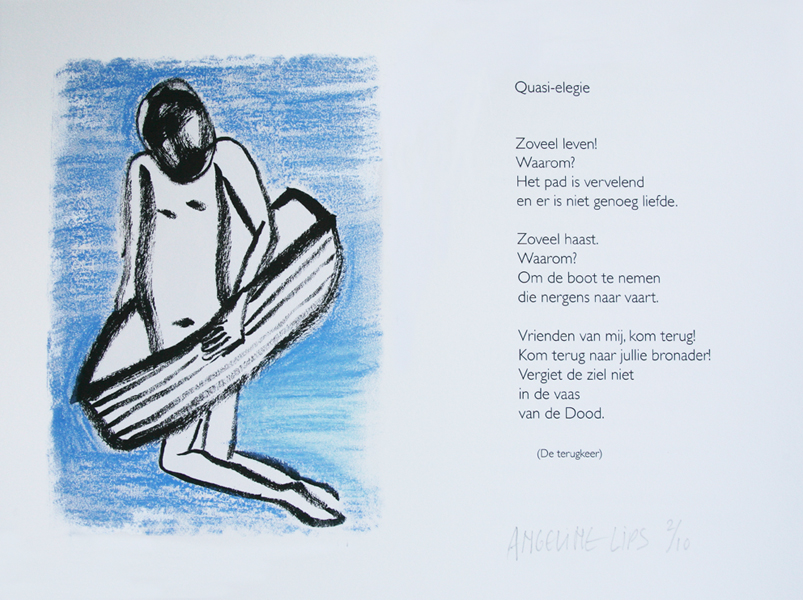 Quasi-elegie
Zoveel leven!
Waarom?
Het pad is vervelend
en er is niet genoeg liefde.
Zoveel haast.
Waarom?
Om de boot te nemen
die nergens naar vaart.
Vrienden van mij, kom terug!
Kom terug naar jullie bronader!
Vergiet de ziel niet
in de vaas
van de Dood.
(De terugkeer)
ANGELINE LIPS 2/10